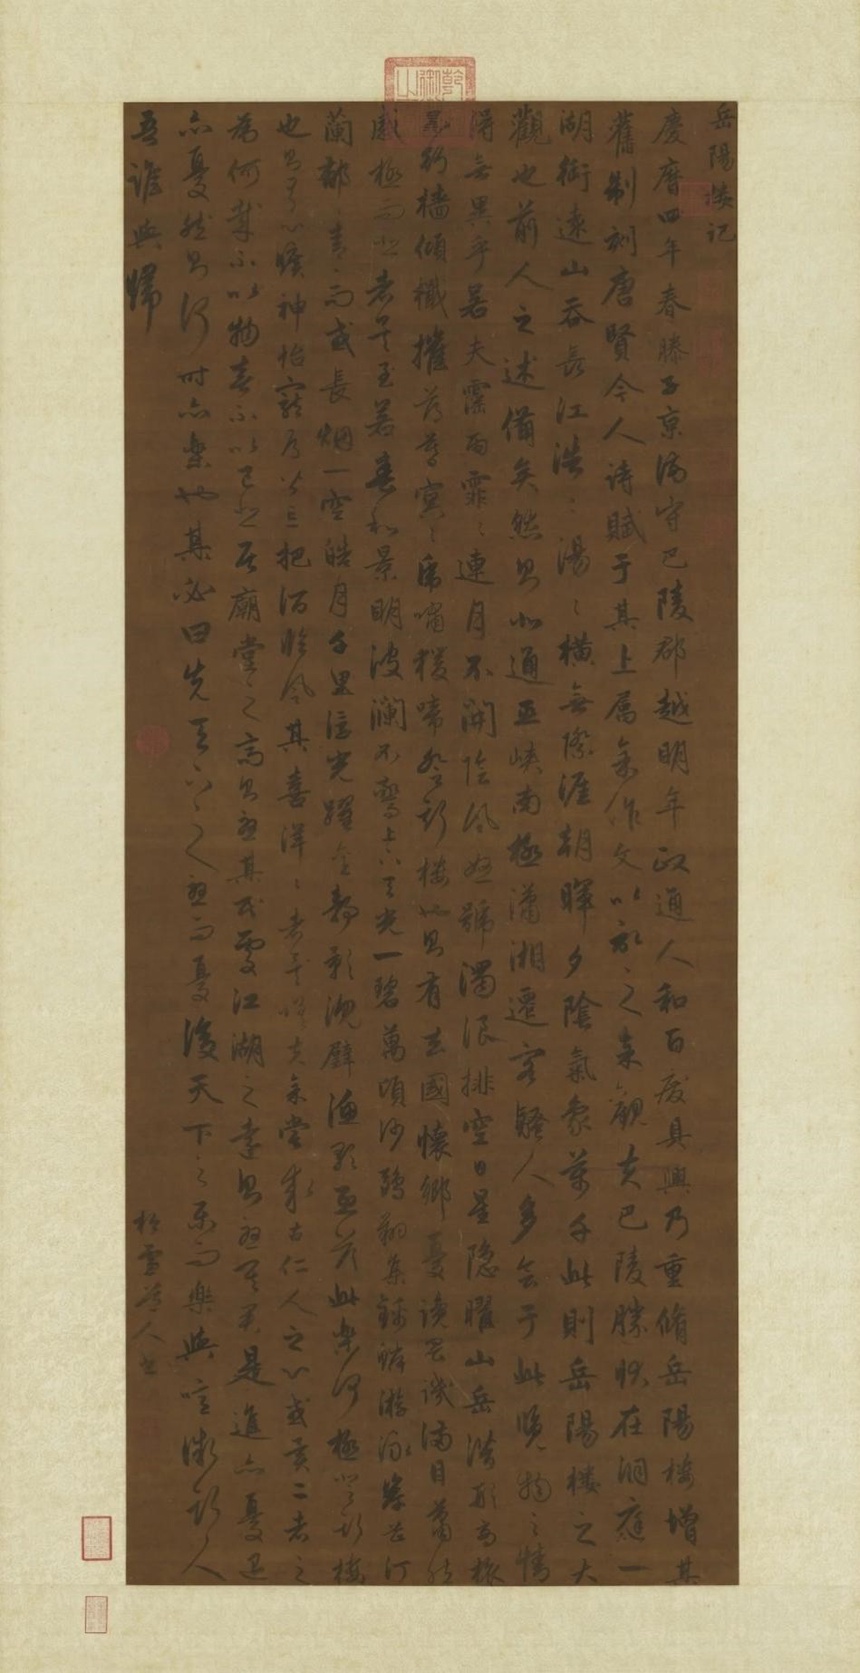 岳陽樓記
慶曆四年春滕子京謫守巴陵郡越明年政通人和百廢具興乃重脩岳陽樓增其
舊制刻唐賢今人詩賦于其上屬余作文以記之余觀夫巴陵勝狀在洞庭一
湖銜遠山吞長江浩〻湯〻橫無際涯朝暉夕陰氣象萬千此則岳陽樓之大
觀也前人之述備矣然則北通巫峽南極瀟湘遷客騷人多會于此覽物之情
得無異乎若夫霪雨霏〻連月不開陰風怒號濁浪排空日星隱曜山岳潛形商旅
不行檣傾檝摧薄暮冥〻虎嘯猿啼登斯樓也則有去國懷鄉憂讒畏譏滿目蕭然
感極而悲者矣至若春和景明波瀾不驚上下天光一碧萬頃沙鷗翔集錦鱗游泳岸芷汀
蘭郁〻青〻而或長烟一空皓月千里浮光躍金靜影沉璧漁歌互答此樂何極登斯樓
也則有心曠神怡寵辱皆忘把酒臨風其喜洋〻者矣嗟夫余嘗求古仁人之心或異二者之
為何哉不以物喜不以己悲居廟堂之高則憂其民處江湖之遠則憂其君是進亦憂退
亦憂然則何時亦樂也其必曰先天下之憂而憂後天下之樂而樂與噫微斯人
吾誰與歸
松雪道人書